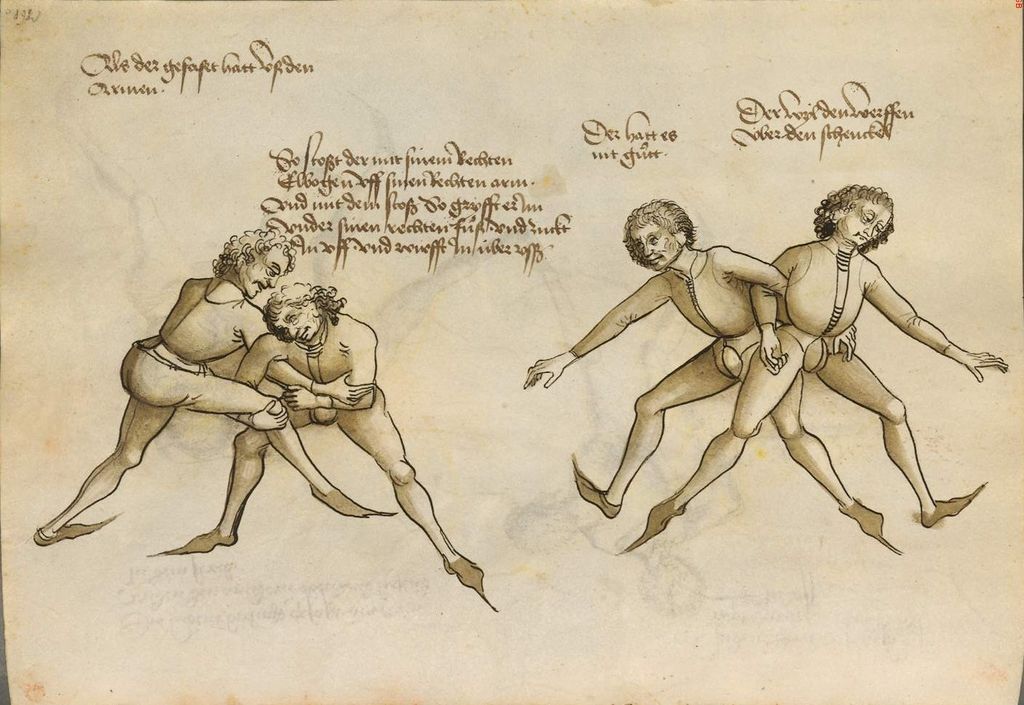 Als der gefasset hatt vsden
Armen.
So stosst der mit sinem Rechten
Elbogen vff sinen Rechten arm.
Vnd mit dem stoß So gryfft er Im
vnder sinen rechten fuß vnd ruckt
In vff vnd wurfft In über rugg
Der hatt es
nit gutt
Der wyl den werffen
Vber den schenckel